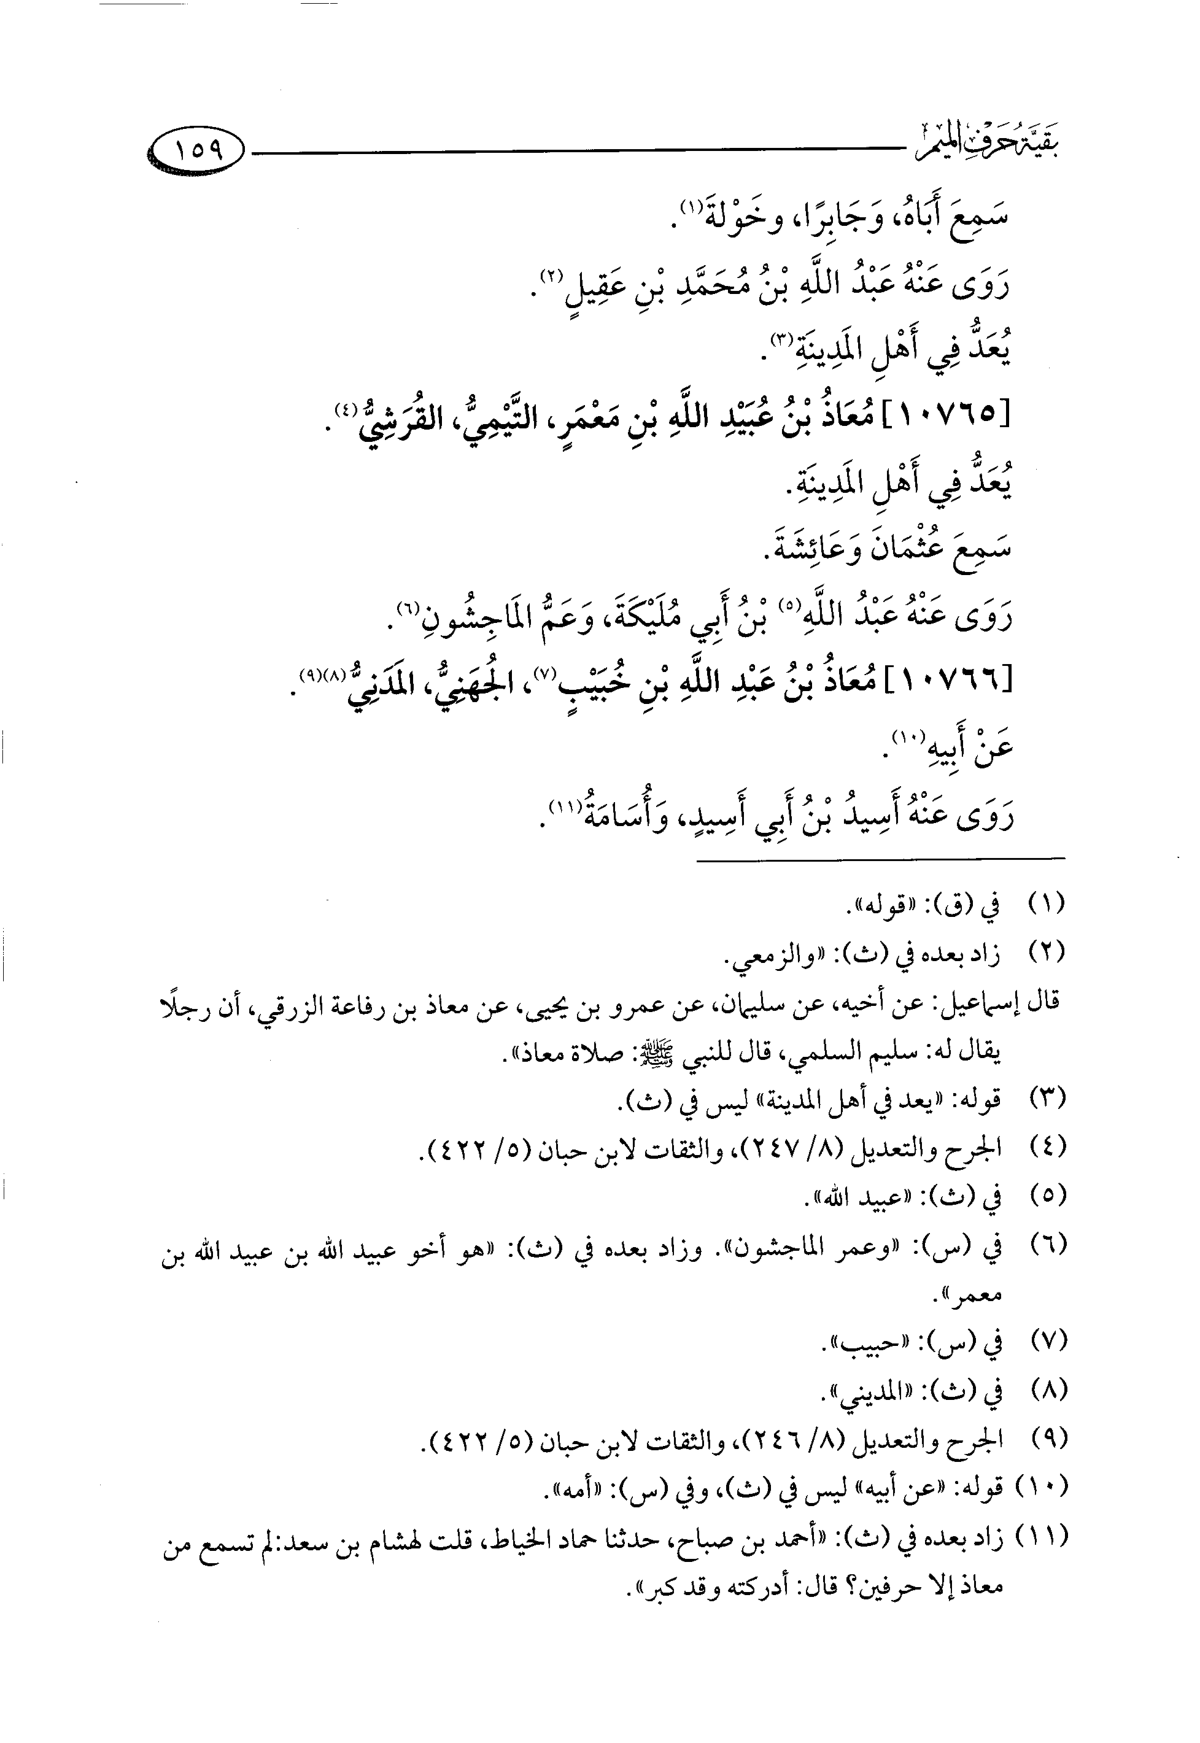 بَقيَّة حَرفِ الميْم
١٥٩
سَمِعَ أَبَاهُ، وَجَابِرًا، وخَوْلةَ(١).
رَوَى عَنْهُ عَبْدُ اللَّهِ بْنُ مُحَمَّدِ بْنِ عَقِيلٍ(٢).
يُعَدُّ فِي أَهْلِ المَدِينَةِ(٣).
[١٠٧٦٥] مُعَاذُ بْنُ عُبَيْدِ اللَّهِ بْنِ مَعْمَرٍ، التَّيْمِيُّ، القُرَشِيُّ(٤).
يُعَدُّ فِي أَهْلِ المَدِينَةِ.
سَمِعَ عُثْمَانَ وَعَائِشَةَ.
رَوَى عَنْهُ عَبْدُ اللَّهِ(٥) بْنُ أَبِي مُلَيْكَةَ، وَعَمُّ المَاجِشُونِ(٦).
[١٠٧٦٦] مُعَاذُ بْنُ عَبْدِ اللَّهِ بْنِ خُبَيْبٍ(٧)، الجُهَنِيُّ، المَدَنِيُّ(٨)(٩).
عَنْ أَبِيهِ(١٠).
رَوَى عَنْهُ أَسِيدُ بْنُ أَبِي أَسِيدٍ، وَأُسَامَةُ(١١).
(١) في (ق): «قوله».
(٢) زاد بعده في (ث): «والزمعي.
قال إسماعيل: عن أخيه، عن سليمان، عن عمرو بن يحيى، عن معاذ بن رفاعة الزرقي، أن رجلًا
يقال له: سليم السلمي، قال للنبي ﷺ: صلاة معاذ».
(٣) قوله: «يعد في أهل المدينة» ليس في (ث).
(٤) الجرح والتعديل (٨/ ٢٤٧)، والثقات لابن حبان (٥/ ٤٢٢).
(٥) في (ث): «عبيد الله».
(٦) في (س): «وعمر الماجشون». وزاد بعده في (ث): «هو أخو عبيد الله بن عبيد الله بن
معمر».
(٧) في (س): «حبيب».
(٨) في (ث): «المديني».
(٩) الجرح والتعديل (٨/ ٢٤٦)، والثقات لابن حبان (٥/ ٤٢٢).
(١٠) قوله: «عن أبيه» ليس في (ث)، وفي (س): «أمه».
(١١) زاد بعده في (ث): «أحمد بن صباح، حدثنا حماد الخياط، قلت لهشام بن سعد:لم تسمع من
معاذ إلا حرفين؟ قال: أدركته وقد كبر».